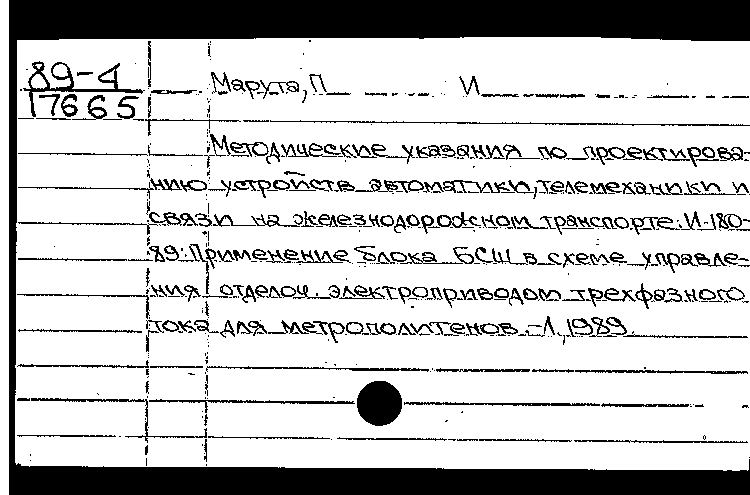 89-4
17665
Марута, П И
Методические указания по проектирова-
нию устройств автоматики, телемеханики и
связи на железнодорожном транспорте: И-180-
89: Применение блока БСШ в схеме управле-
ния отделоч. электроприводом трехфазного
тока для метрополитенов.-Л., 1989.